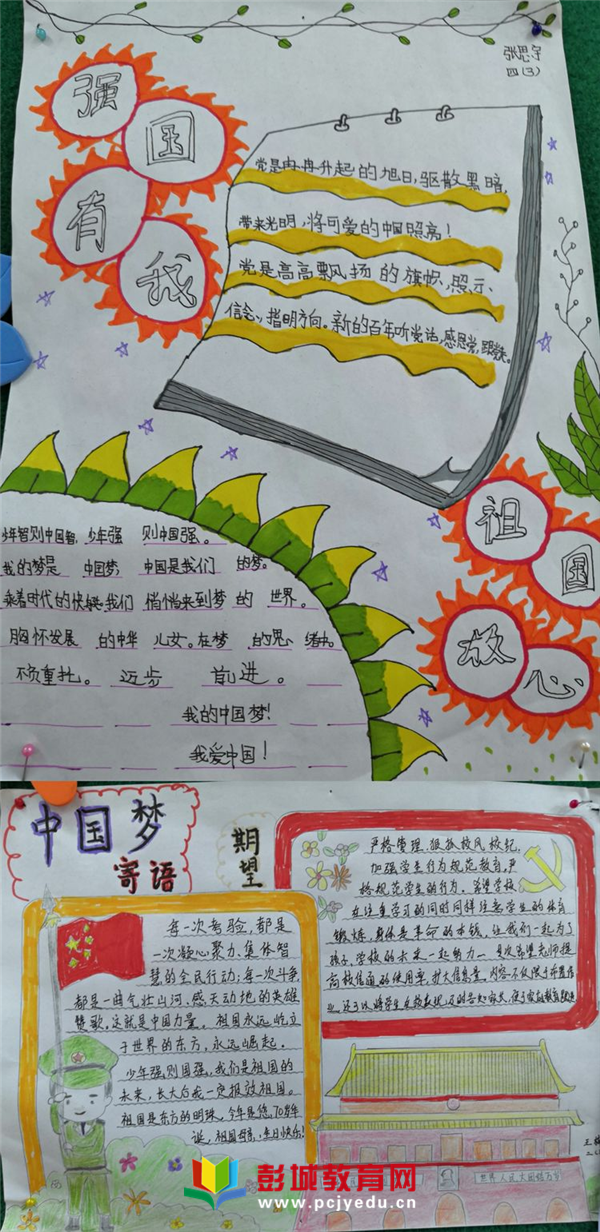 张思宇
四（3）
强国
有我
党是冉冉升起的旭日，驱散黑暗，
带来光明，将可爱的中国照亮！
党是高高飘扬的旗帜，昭示
信念，指明方向。新的百年听党话，感恩党，跟党走。
祖国
放心
少年智则中国智，少年强 则中国强。
我的梦是 中国梦， 中国是我们 的梦。
乘着时代的快艇，我们 悄悄来到梦 的 世界。
胸怀发展 的中华 儿女。在梦 的思 绪中。
不负重托。 迈步 前进 。
我的中国梦！
我爱中国！
中国梦
寄语
每一次考验，都是
一次凝心聚力、集体智
慧的全民行动；每一次斗争
都是一曲气壮山河、感天动地的英雄
赞歌。这就是中国力量。祖国永远屹立
于世界的东方，永远崛起。
少年强则国强，我们是祖国的
未来，长大后我一定报效祖国。
祖国是东方的明珠。今年是您70岁华
诞，祖国母亲，生日快乐！
期望
严格管理，狠抓校风校纪，
加强学生行为规范教育，严
格规范学生的行为。希望学校
在注重学习的同时同样注意学生的体育
锻炼，身体是革命的本钱。让我们一起为了
孩子、学校的未来一起努力
高校信通的使用率，扩大信息量，内容不仅限于布置作
业，还可以将学生在校表现
世界人民大团结万岁
彭城教育网
www.pcjyedu.cn